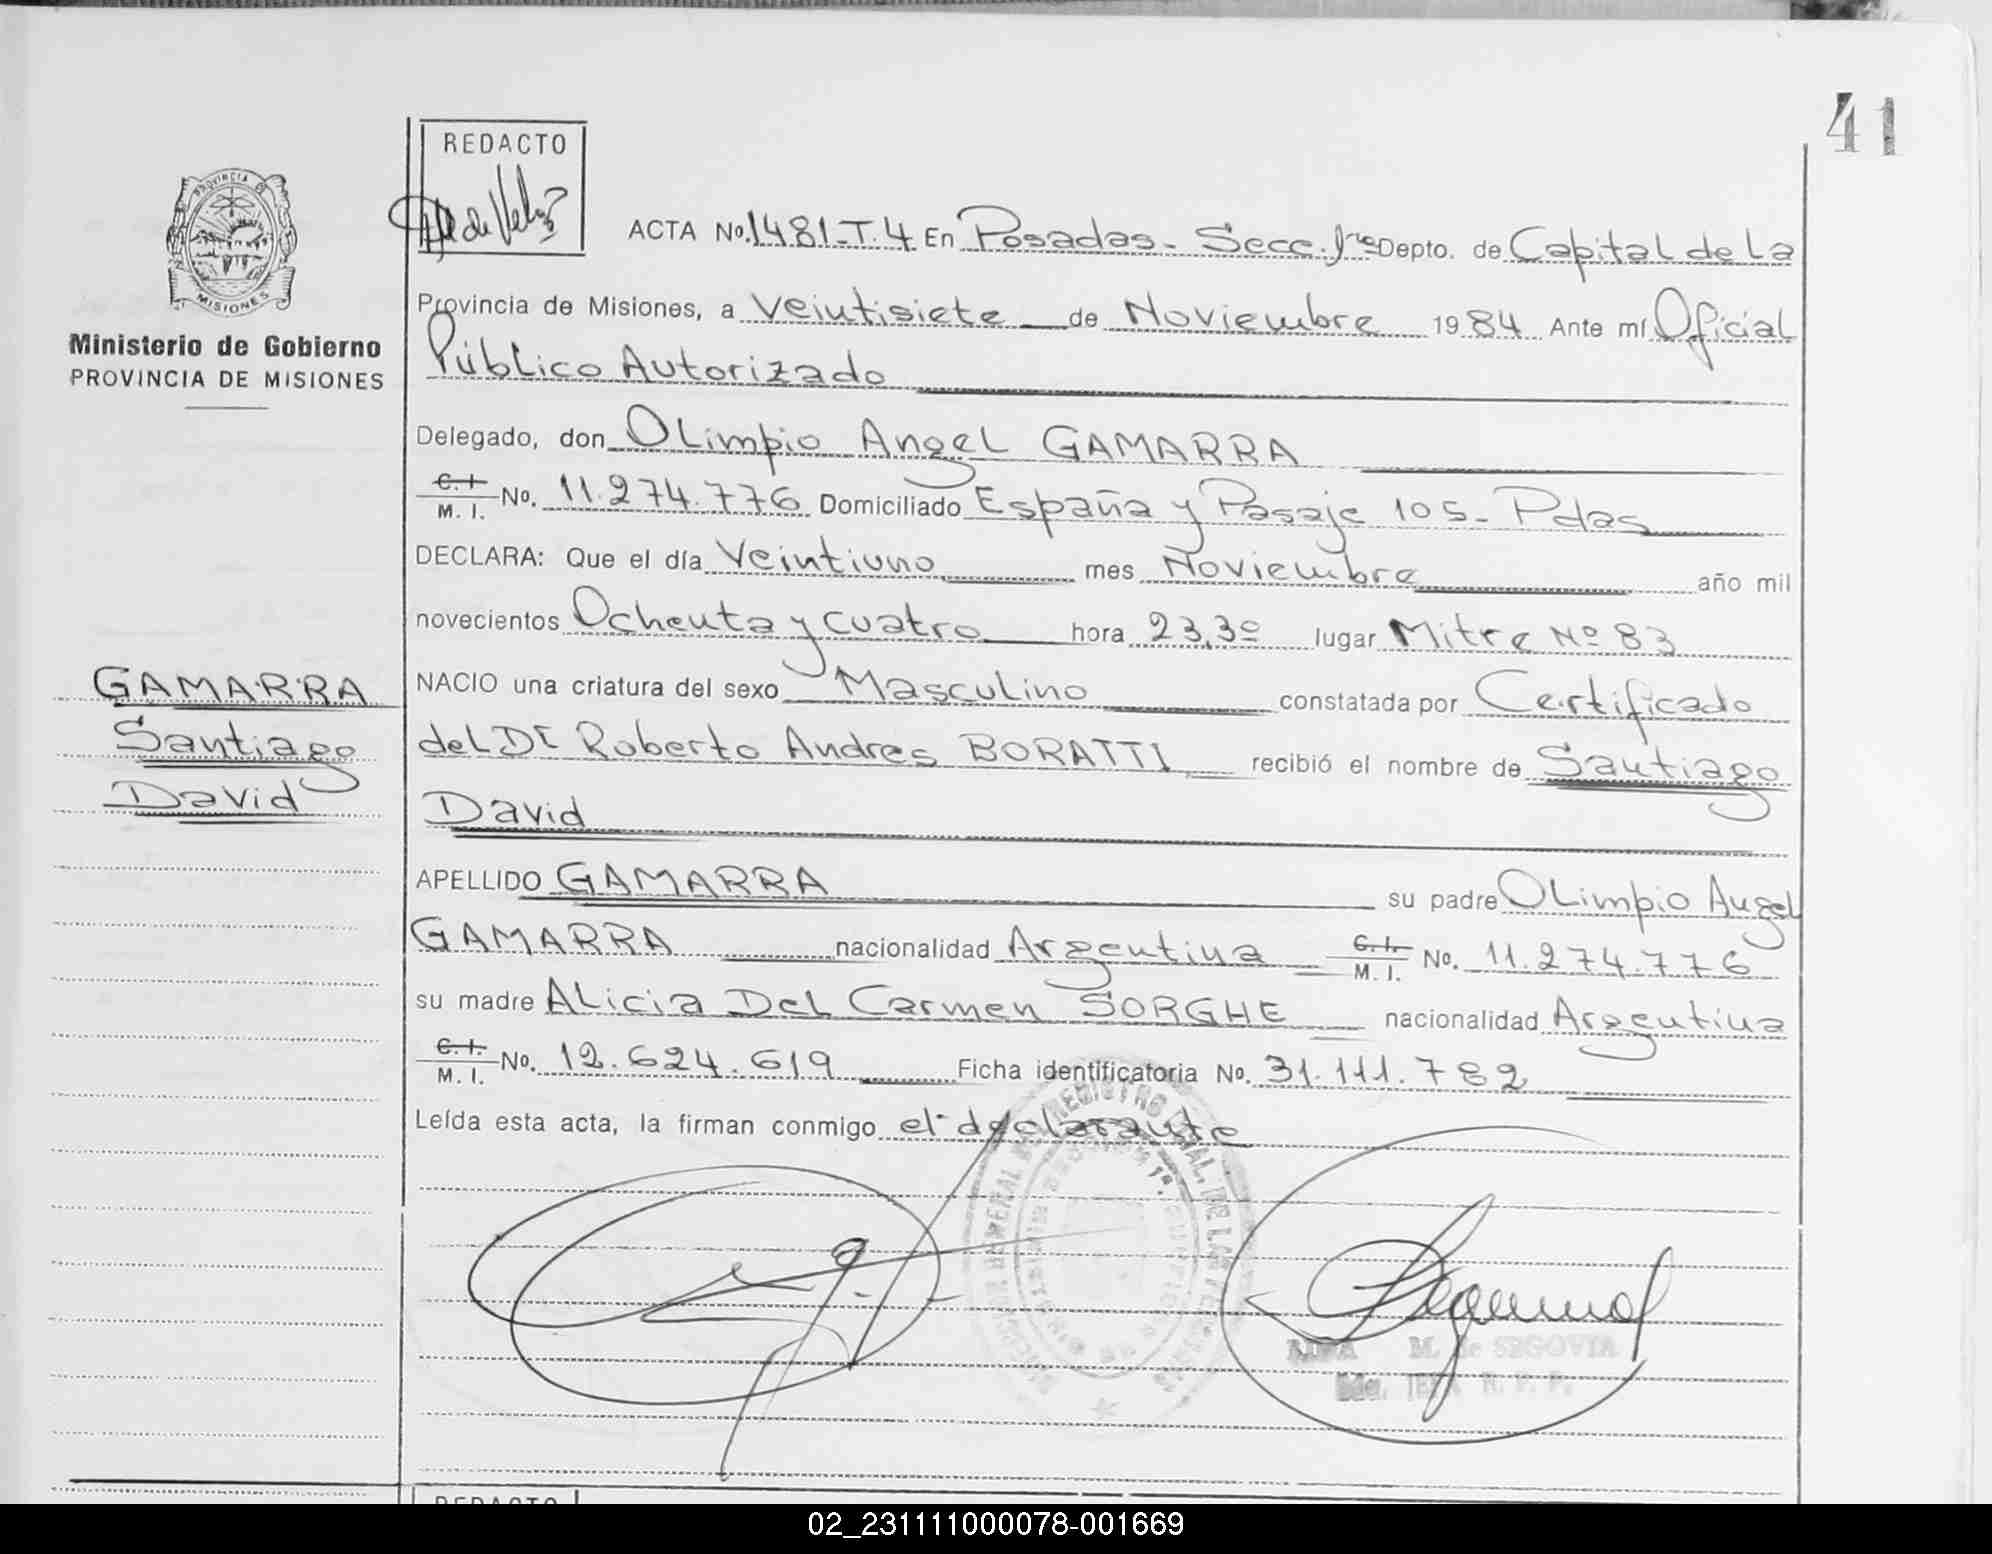 41
REDACTO
PROVINCIA DE
MISIONES
Ministerio de Gobierno
PROVINCIA DE MISIONES
ACTA No. 1481-T.4 En Posadas - Secc. 1ra Depto. de Capital de La
Provincia de Misiones, a Veintisiete de Noviembre 1984 Ante mí Oficial
Público Autorizado
Delegado, don Olimpio Angel GAMARRA
C. I. M. I. No. 11.274.776 Domiciliado España y Pasaje 105 - Pdas
DECLARA: Que el día Veintiuno mes Noviembre año mil
novecientos Ochenta y cuatro hora 23,30 lugar Mitre Nº 83
NACIO una criatura del sexo Masculino constatada por Certificado
del Dr Roberto Andres BORATTI recibió el nombre de Santiago
David
APELLIDO GAMARRA su padre Olimpio Angel
GAMARRA nacionalidad Argentina C. I. M. I. No. 11.274.776
su madre Alicia Del Carmen SORGHE nacionalidad Argentina
C. I. M. I. No. 12.624.619 Ficha identificatoria No. 31.111.782
Leída esta acta, la firman conmigo el declarante
GAMARRA
Santiago
David
M. de SEGOVIA
REDACTO
02_231111000078-001669